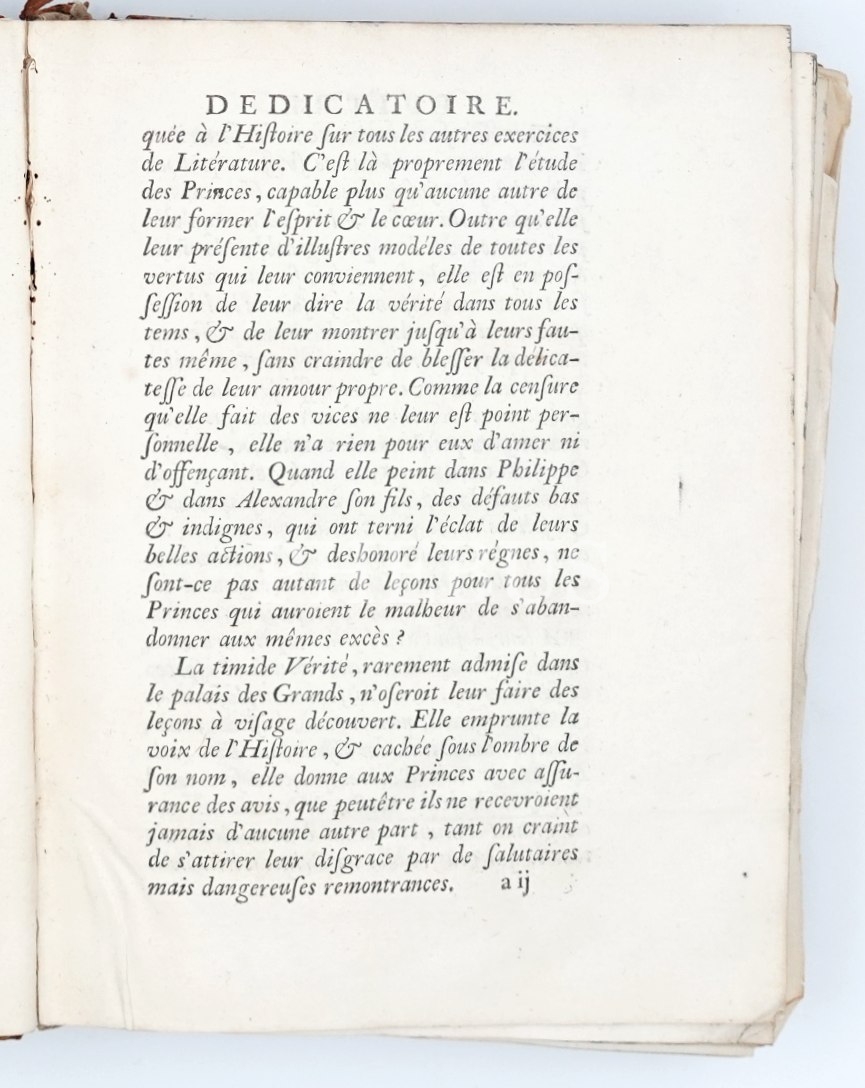 DEDICATOIRE.
quée à l'Hiſtoire ſur tous les autres exercices
de Litérature. C'eſt là proprement l'étude
des Princes, capable plus qu'aucune autre de
leur former l'eſprit & le cœur. Outre qu'elle
leur préſente d'illuſtres modéles de toutes les
vertus qui leur conviennent, elle eſt en poſ-
ſeſſion de leur dire la vérité dans tous les
tems, & de leur montrer juſqu'à leurs fau-
tes même, ſans craindre de bleſſer la délica-
teſſe de leur amour propre. Comme la cenſure
qu'elle fait des vices ne leur eſt point per-
ſonnelle, elle n'a rien pour eux d'amer ni
d'offençant. Quand elle peint dans Philippe
& dans Alexandre ſon fils, des défauts bas
& indignes, qui ont terni l'éclat de leurs
belles actions, & deshonoré leurs régnes, ne
ſont-ce pas autant de leçons pour tous les
Princes qui auroient le malheur de s'aban-
donner aux mêmes excès ?
La timide Vérité, rarement admiſe dans
le palais des Grands, n'oſeroit leur faire des
leçons à viſage découvert. Elle emprunte la
voix de l'Hiſtoire, & cachée ſous l'ombre de
ſon nom, elle donne aux Princes avec aſſu-
rance des avis, que peutêtre ils ne recevroient
jamais d'aucune autre part, tant on craint
de s'attirer leur diſgrace par de ſalutaires
mais dangereuſes remontrances. a ij